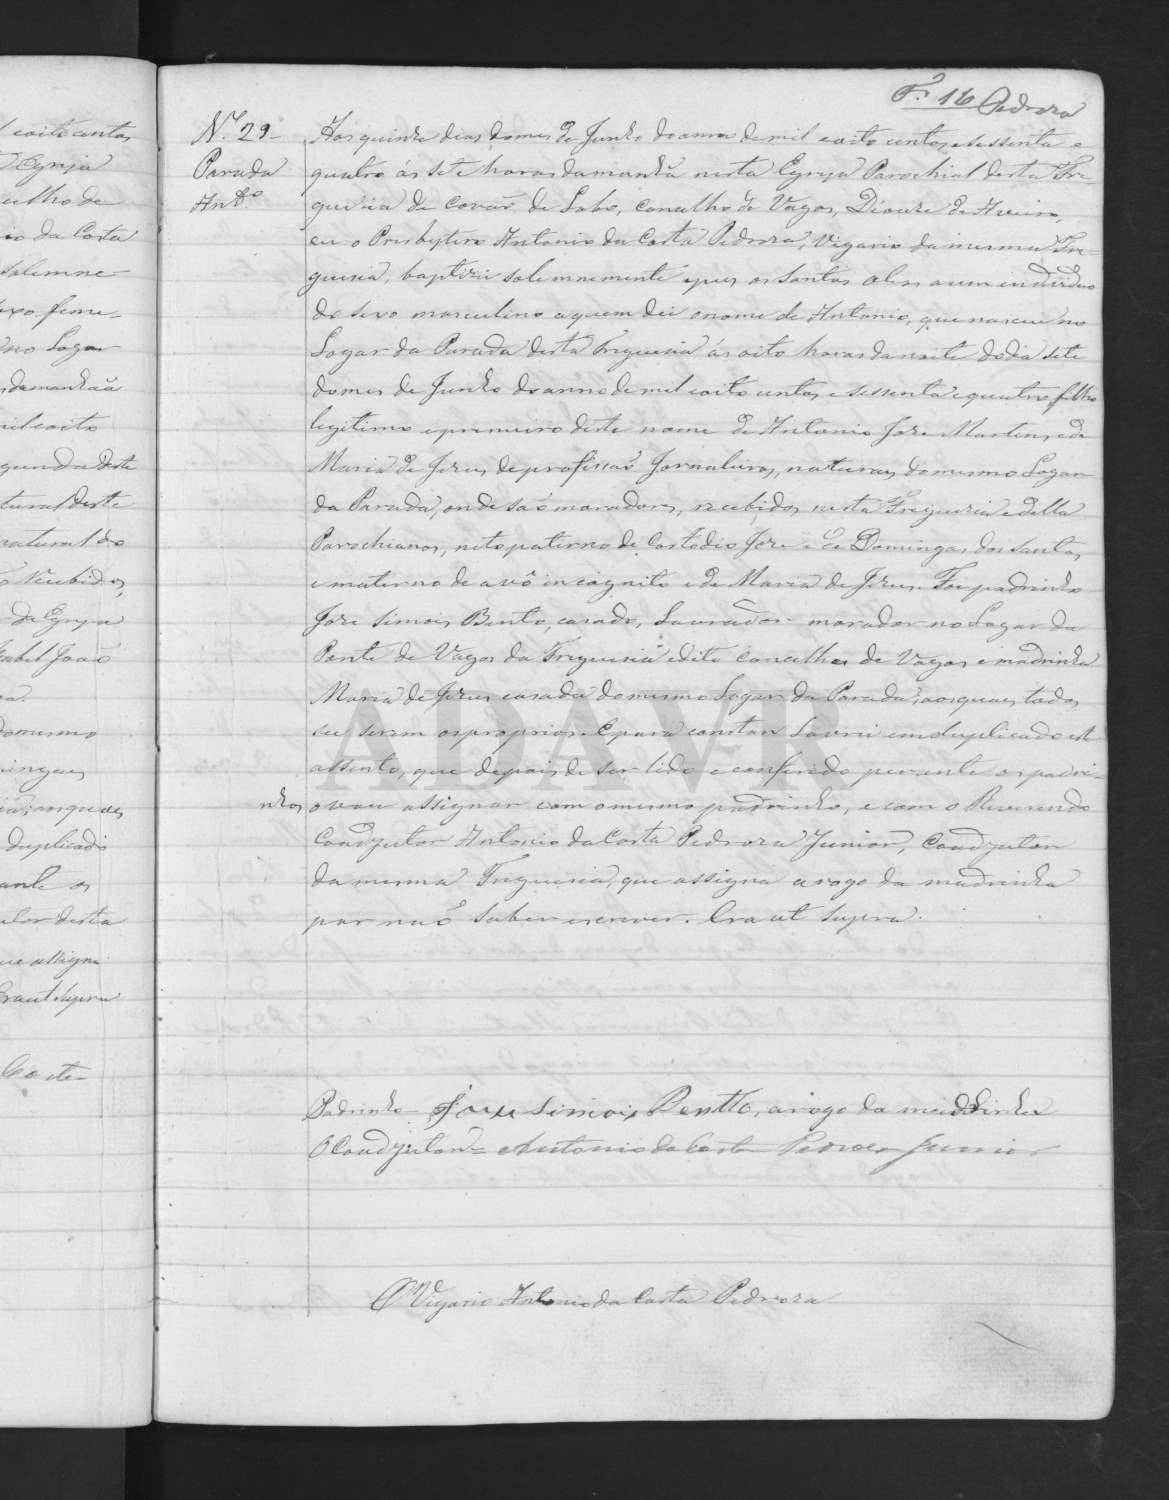 Fl. 16 Pedroza
N.º 29
Parada
Ant.º
Aos quinze dias do mes de Junho do anno de mil e oito centos e sessenta e
quatro ás sete horas da manhã nesta Egreja Parochial desta Fre-
guesia de Covaõ de Lobo, Concelho de Vagos, Diocese de Aveiro,
eu o Presbytero Antonio da Costa Pedroza, Vigario da mesma Fre-
guesia, baptizei solemnemente e puz os Santos oleos a um individuo
do sexo masculino a quem dei o nome de Antonio, que nasceu no
Logar da Parada desta Freguesia ás oito horas da noite do dia sete
do mes de Junho do anno de mil e oito centos e sessenta e quatro, filho
legitimo e primeiro deste nome de Antonio Joze Martins, e de
Maria de Jezus, de profissaõ Jornaleiros, naturaes do mesmo Logar
da Parada, onde saõ moradores, recebidos nesta Freguesia e della
Parochianos, neto paterno de Costodio Joze e de Domingas dos Santos,
e materno de avô incognito e de Maria de Jezus. Foi padrinho
Joze Simois Bento, casado, Lavrador morador no Logar da
Ponte de Vagos da Freguesia e dito Concelho de Vagos e madrinha
Maria de Jezus casada do mesmo Logar da Parada; aos quaes todos
sei serem os proprios. E para constar Lavrei em duplicado este
assento, que depois de ser lido e conferido perante os padri-
nhos, o vou assignar com o mesmo padrinho, e com o Reverendo
Coadjutor Antonio da Costa Pedroza Junior, Coadjutor
da mesma Freguesia, que assigna a rogo da madrinha
por naõ saber escrever. Era ut supra.
Padrinho Joze Simois Bentto, a rogo da madrinha
O Coadjutor = Antonio da Costa Pedroza Junior
O Vigario Antonio da Costa Pedroza
ADAVR